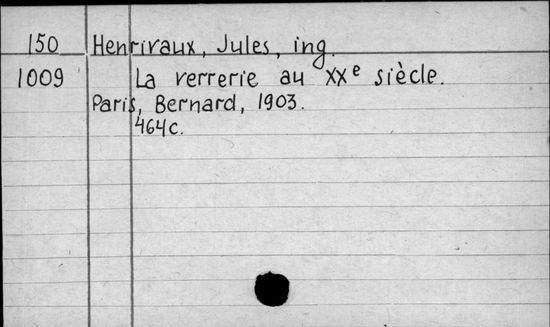 150 Henrivaux, Jules, ing.
1009 La verrerie au XXe siècle.
Paris, Bernard, 1903.
464c.